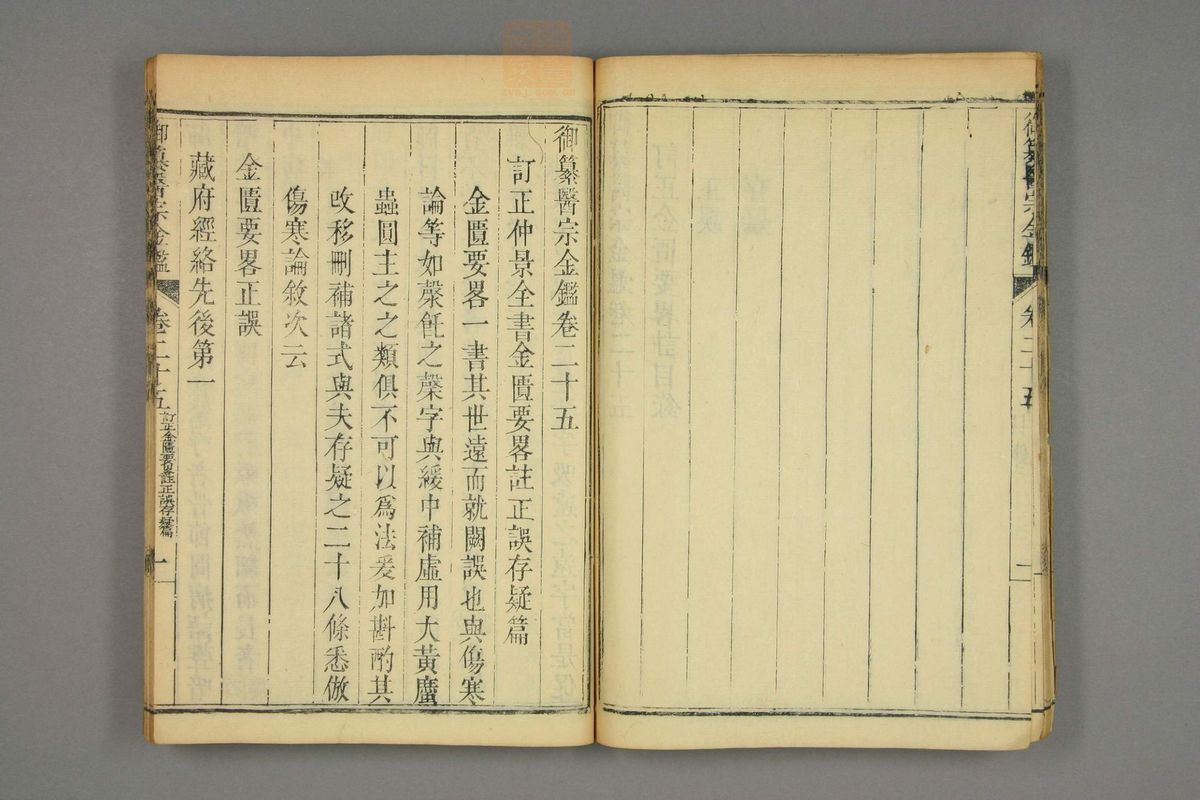 御纂醫宗金鑑
卷二十五
一
御纂醫宗金鑑卷二十五
訂正仲景全書金匱要畧註正誤存疑篇
金匱要畧一書其世遠而就闕誤也與傷寒
論等如漀飥之漀字與緩中補虛用大黃䗪
蟲圓主之之類俱不可以爲法爰加斟酌其
改移刪補諸式與夫存疑之二十八條悉倣
傷寒論敘次云
金匱要畧正誤
藏府經絡先後第一
御纂醫宗金鑑
卷二十五
訂正金匱要畧註正誤存疑篇
一